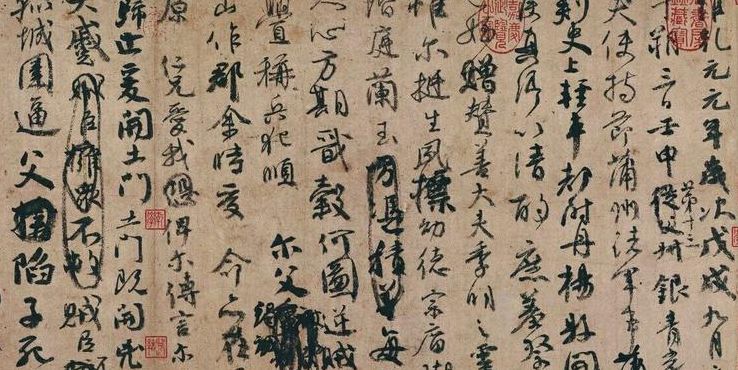 乾元元年歲次戊戌九月
朔三日壬申第十三從父叔銀青光
夫使持節蒲州諸軍事蒲
刺史上輕車都尉丹楊縣開國
侯真卿以清酌庶羞祭
姪贈贊善大夫季明之靈
惟爾挺生夙標幼德宗廟瑚
階庭蘭玉方憑積善每
人心方期戩穀何圖逆賊
釁稱兵犯順爾父
山作郡余時受命亦在
原仁兄愛我恐俾爾傳言爾
歸止爰開土門土門既開凶
大蹙賊臣擁衆不救賊臣
孤城圍逼父擒陷子死